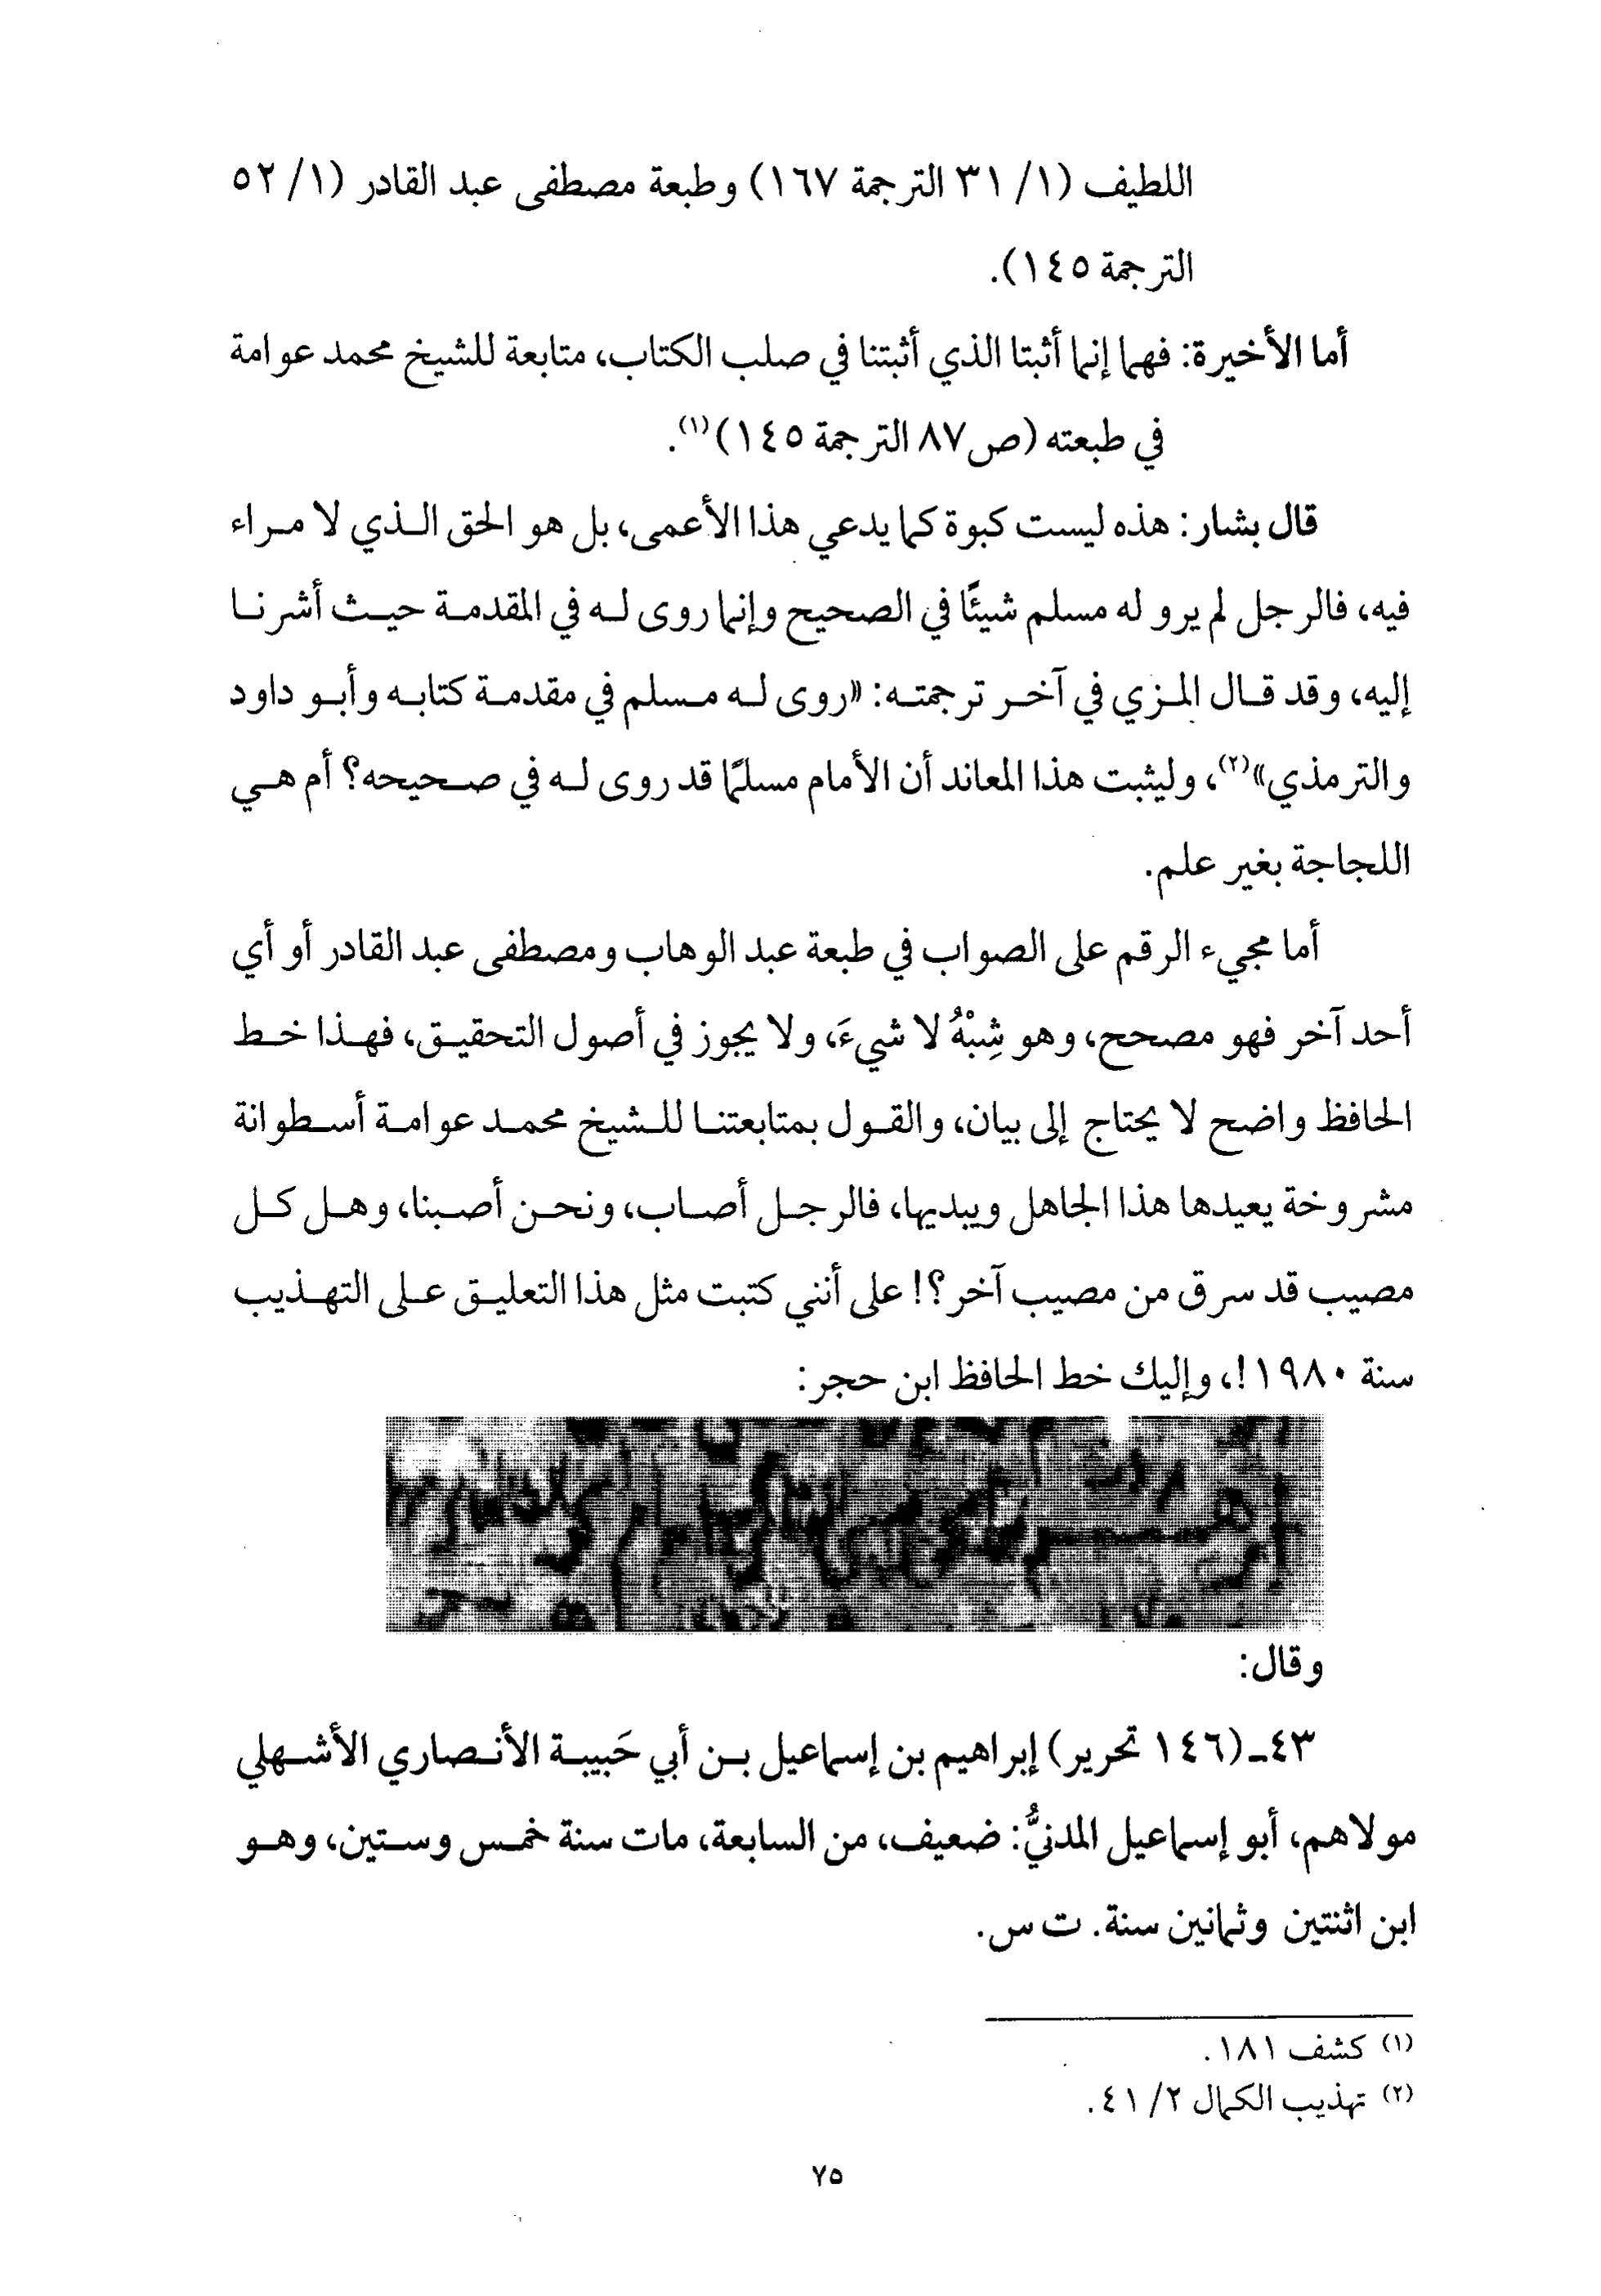 اللطيف (١/ ٣١ الترجمة ١٦٧) وطبعة مصطفى عبد القادر (١/ ٥٢
الترجمة ١٤٥).
أما الأخيرة: فهما إنما أثبتا الذي أثبتنا في صلب الكتاب، متابعة للشيخ محمد عوامة
في طبعته (ص٨٧ الترجمة ١٤٥)(١).
قال بشار: هذه ليست كبوة كما يدعي هذا الأعمى، بل هو الحق الذي لا مراء
فيه، فالرجل لم يرو له مسلم شيئًا في الصحيح وإنما روى له في المقدمة حيث أشرنا
إليه، وقد قال المزي في آخر ترجمته: «روى له مسلم في مقدمة كتابه وأبو داود
والترمذي»(٢)، وليثبت هذا المعاند أن الأمام مسلمًا قد روى له في صحيحه؟ أم هي
اللجاجة بغير علم.
أما مجيء الرقم على الصواب في طبعة عبد الوهاب ومصطفى عبد القادر أو أي
أحد آخر فهو مصحح، وهو شِبْهُ لا شيءَ، ولا يجوز في أصول التحقيق، فهذا خط
الحافظ واضح لا يحتاج إلى بيان، والقول بمتابعتنا للشيخ محمد عوامة أسطوانة
مشروخة يعيدها هذا الجاهل ويبديها، فالرجل أصاب، ونحن أصبنا، وهل كل
مصيب قد سرق من مصيب آخر؟! على أنني كتبت مثل هذا التعليق على التهذيب
سنة ١٩٨٠!، وإليك خط الحافظ ابن حجر:
وقال:
٤٣ـ (١٤٦ تحرير) إبراهيم بن إسماعيل بن أبي حَبيبة الأنصاري الأشهلي
مولاهم، أبو إسماعيل المدنيُّ: ضعيف، من السابعة، مات سنة خمس وستين، وهو
ابن اثنتين وثمانين سنة. ت س.
(١) كشف ١٨١.
(٢) تهذيب الكمال ٢/ ٤١.
٧٥